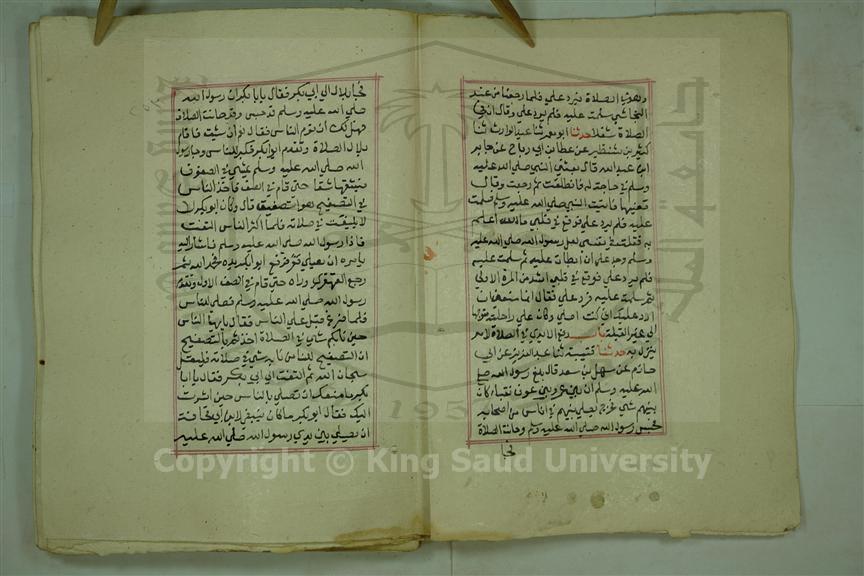 وهو في الصلاة فيرد علي فلما رجعنا من عند
النجاشي سلمت عليه فلم يرد علي وقال ان في
الصلاة شغلا حدثنا ابو معمر ثنا عبد الوارث ثنا
كثير بن شنظير عن عطا بن ابي رباح عن جابر
ابن عبد الله قال بعثني النبي صلي الله عليه
وسلم في حاجة له فانطلقت ثم رجعت وقد
قضيتها فاتيت النبي صلي الله عليه وسلم فسلمت
عليه فلم يرد علي فوقع في قلبي ما الله اعلم
به فقلت في نفسي لعل رسول الله صلي الله عليه
وسلم وجد علي ان ابطات عليه ثم سلمت عليه
فلم يرد علي فوقع في قلبي اشد من المرة الاولي
ثم سلمت عليه فرد علي فقال انما منعني ان
ارد عليك اني كنت اصلي وكان علي راحلته متوجها
الي غير القبلة باب رفع الايدي في الصلاة لامر
ينزل به حدثنا قتيبة ثنا عبد العزيز عن ابي
حازم عن سهل بن سعد قال بلغ رسول الله صلي
الله عليه وسلم ان بني عمرو بن عوف بقباء كان
بينهم شي فخرج يصلح بينهم في اناس من اصحابه
فحبس رسول الله صلي الله عليه وسلم وحانت الصلاة
فجا
فجا بلال الي ابي بكر فقال يا ابا بكر ان رسول الله
صلي الله عليه وسلم قد حبس وقد حانت الصلاة
فهل لك ان تؤم الناس فقال نعم ان شيت فاقام
بلال الصلاة وتقدم ابو بكر فكبر للناس وجا رسول
الله صلي الله عليه وسلم يمشي في الصفوف
يشقها شقا حتي قام في الصف فاخذ الناس
في التصفيح هو التصفيق قال وكان ابو بكر
لا يلتفت في صلاته فلما اكثر الناس التفت
فاذا رسول الله صلي الله عليه وسلم فاشار اليه
يامره ان يصلي فرفع ابو بكر يده فحمد الله ثم
رجع القهقري وراه حتي قام في الصف الاول وتقدم
رسول الله صلي الله عليه وسلم فصلي للناس
فلما فرغ اقبل علي الناس فقال يا ايها الناس
حين نابكم شي في الصلاة اخذتم بالتصفيح
ان التصفيح للنساء من نابه شي في صلاته فليقل
سبحان الله ثم التفت الي ابي بكر فقال يا ابا
بكر ما منعك ان تصلي بالناس حين اشرت
اليك فقال ابو بكر ما كان ينبغي لابن ابي قحافة
ان يصلي بين يدي رسول الله صلي الله عليه
جامعة الملك سعود
1957
Copyright © King Saud University